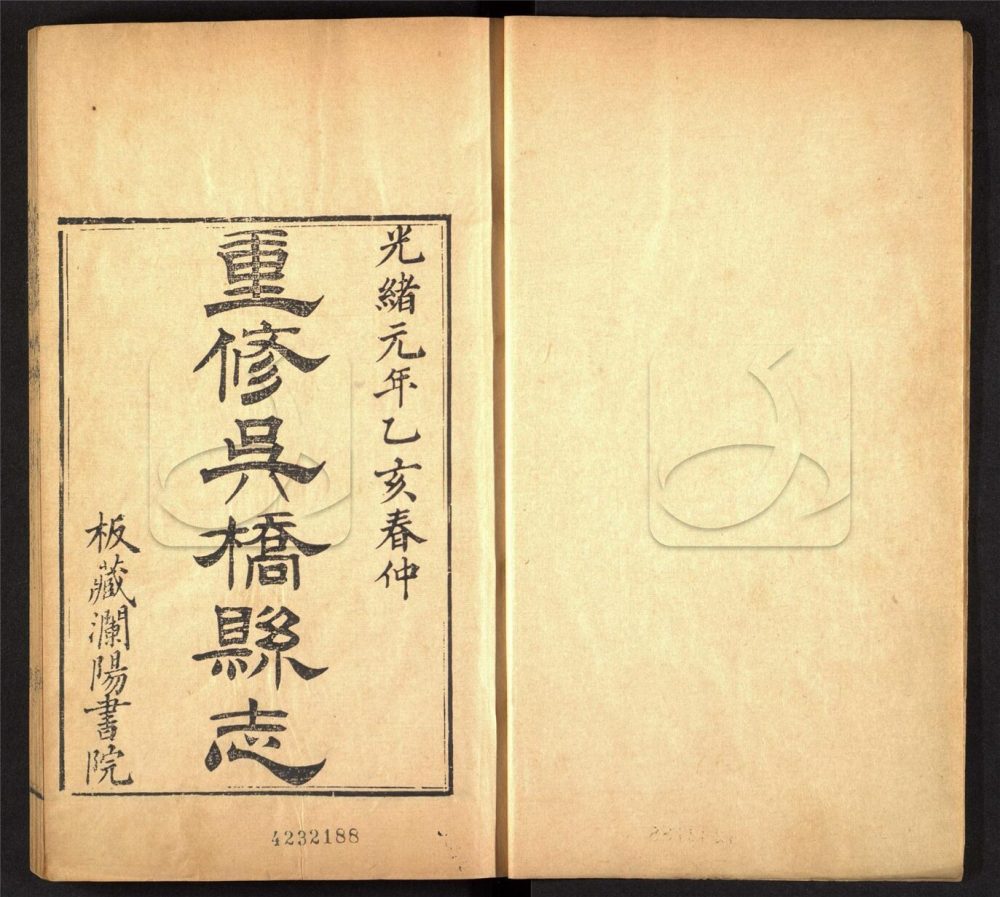 光緒元年乙亥春仲
重修吳橋縣志
板藏瀾陽書院
4232188